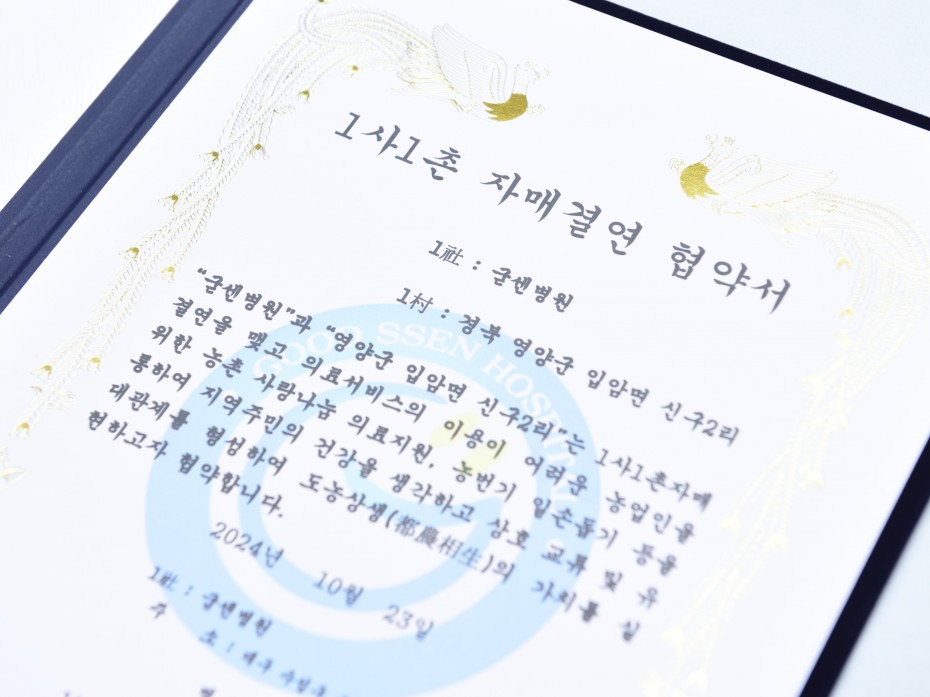 1사1촌 자매결연 협약서
1社 : 굳센병원
1村 : 경북 영양군 입암면 신구2리
GOOD SSEN HOSPITAL
“굳센병원”과 “영양군 입암면 신구2리”는 1사1촌자매
결연을 맺고 의료서비스의 이용이 어려운 농업인을
위한 농촌 사랑나눔 의료지원, 농번기 일손돕기 등을
통하여 지역주민의 건강을 생각하고 상호 교류 및 유
대관계를 형성하여 도농상생(都農相生)의 가치를 실
현하고자 협약합니다.
2024년 10월 23일
1社 : 굳센병원
주 소 : 대구 수성구